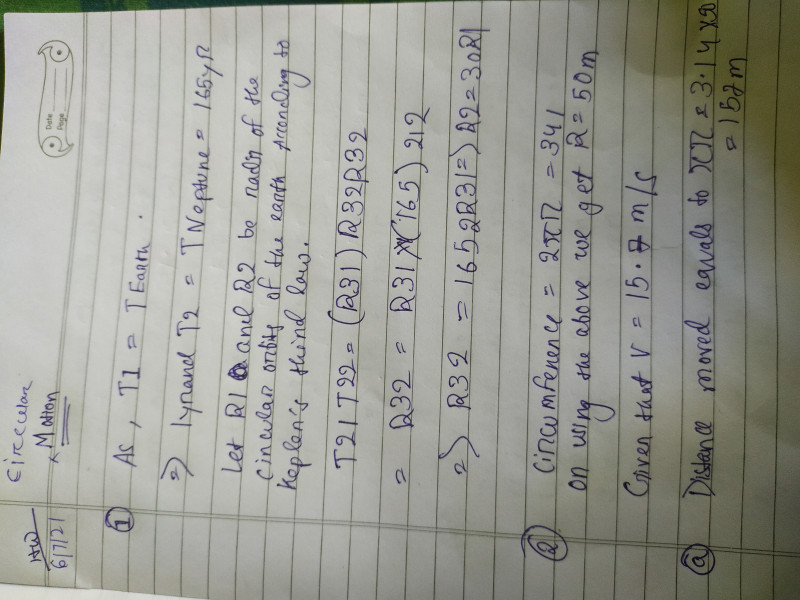 Date
Page
HW
6/7/21
Circular
Motion
① As, T1 = TEarth.
=) 1yr and T2 = TNeptune = 165yr
Let R1 and R2 be radii of the
circular orbits of the earth according to
Kepler's third law.
T21T22 = (R31) R32R32
= R32 = R31 x (165) 212
=) R32 = 1652R31=) R2=30R1
② Circumference = 2πr = 341
on using the above we get R = 50m
Given that V = 15.7 m/s
ⓐ Distance moved equals to πr = 3.14 x 50
= 157m